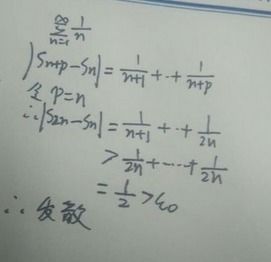 ∞∑n=1 1/n
|Sn+p-Sn|=1/(n+1)+··+1/(n+p)
令 p=n
∴|S2n-Sn|=1/(n+1)+··+1/2n
>1/2n+···+1/2n
=1/2>ε0
∴发散